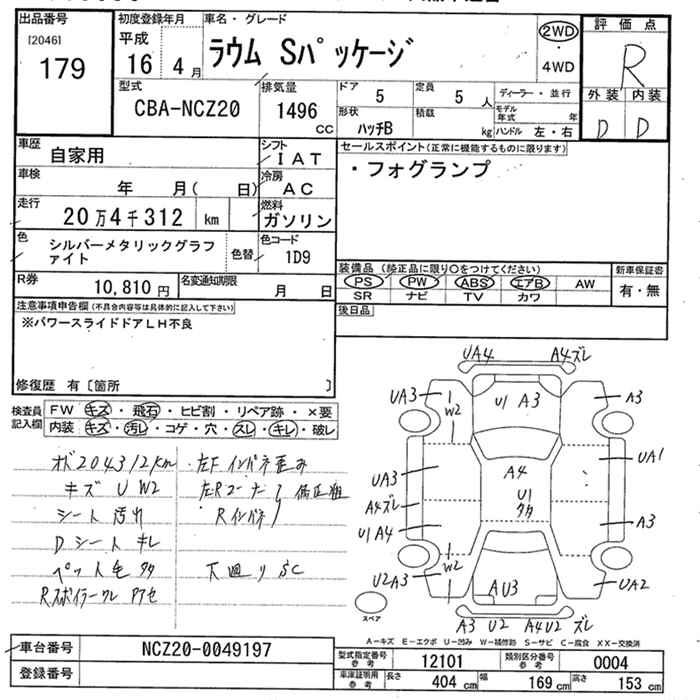 出品番号
[2046]
179
初度登録年月
平成
16 4月
車名・グレード
ラウム Sパッケージ
2WD
・
4WD
評価点
R
外装 内装
D D
型式
CBA-NCZ20
排気量
1496
CC
ドア
5
定員
5 人
ディーラー・並行
形状
ハッチB
積載
kg
モデル年式 年
ハンドル 左・右
車歴
自家用
シフト
IAT
セールスポイント(正常に機能するものに限ります)
・フォグランプ
車検
年 月( 日)
冷房
AC
走行
20万4千312 km
燃料
ガソリン
色
シルバーメタリックグラファイト
色替
色コード
1D9
R券
10,810円
名変通知期限
月 日
装備品(純正品に限り○をつけてください)
PS PW ABS エアB AW
SR ナビ TV カワ
新車保証書
有・無
後日品
注意事項申告欄(不具合内容等は具体的に記入して下さい)
※パワースライドドアLH不良
修復歴 有〔箇所 〕
検査員
記入欄
FW キズ・飛石・ヒビ割・リペア跡・×要
内装 キズ・汚レ・コゲ・穴・スレ・キレ・破レ
オド204312km
キズ U W2
シート 汚れ
Dシート キレ
ペット毛 多
左F インパネ歪み
左Rコーナー 修正粗
Rインパネ
下廻り SC
UA4 A4ズレ
UA3 W2 U1 A3 A3
UA3 A4 UA1
A4ズレ U1 多
U1A4 A3
W2
U2A3 AU3 UA2
スペア
A3 U2 A4U2 ズレ
A-キズ E-エクボ U-凹み W-補修跡 S-サビ C-腐食 XX-交換済
車台番号
NCZ20-0049197
登録番号
型式指定番号
参考
12101
類別区分番号
参考
0004
車庫証明用
参考
長さ 404cm 幅 169cm 高さ 153cm